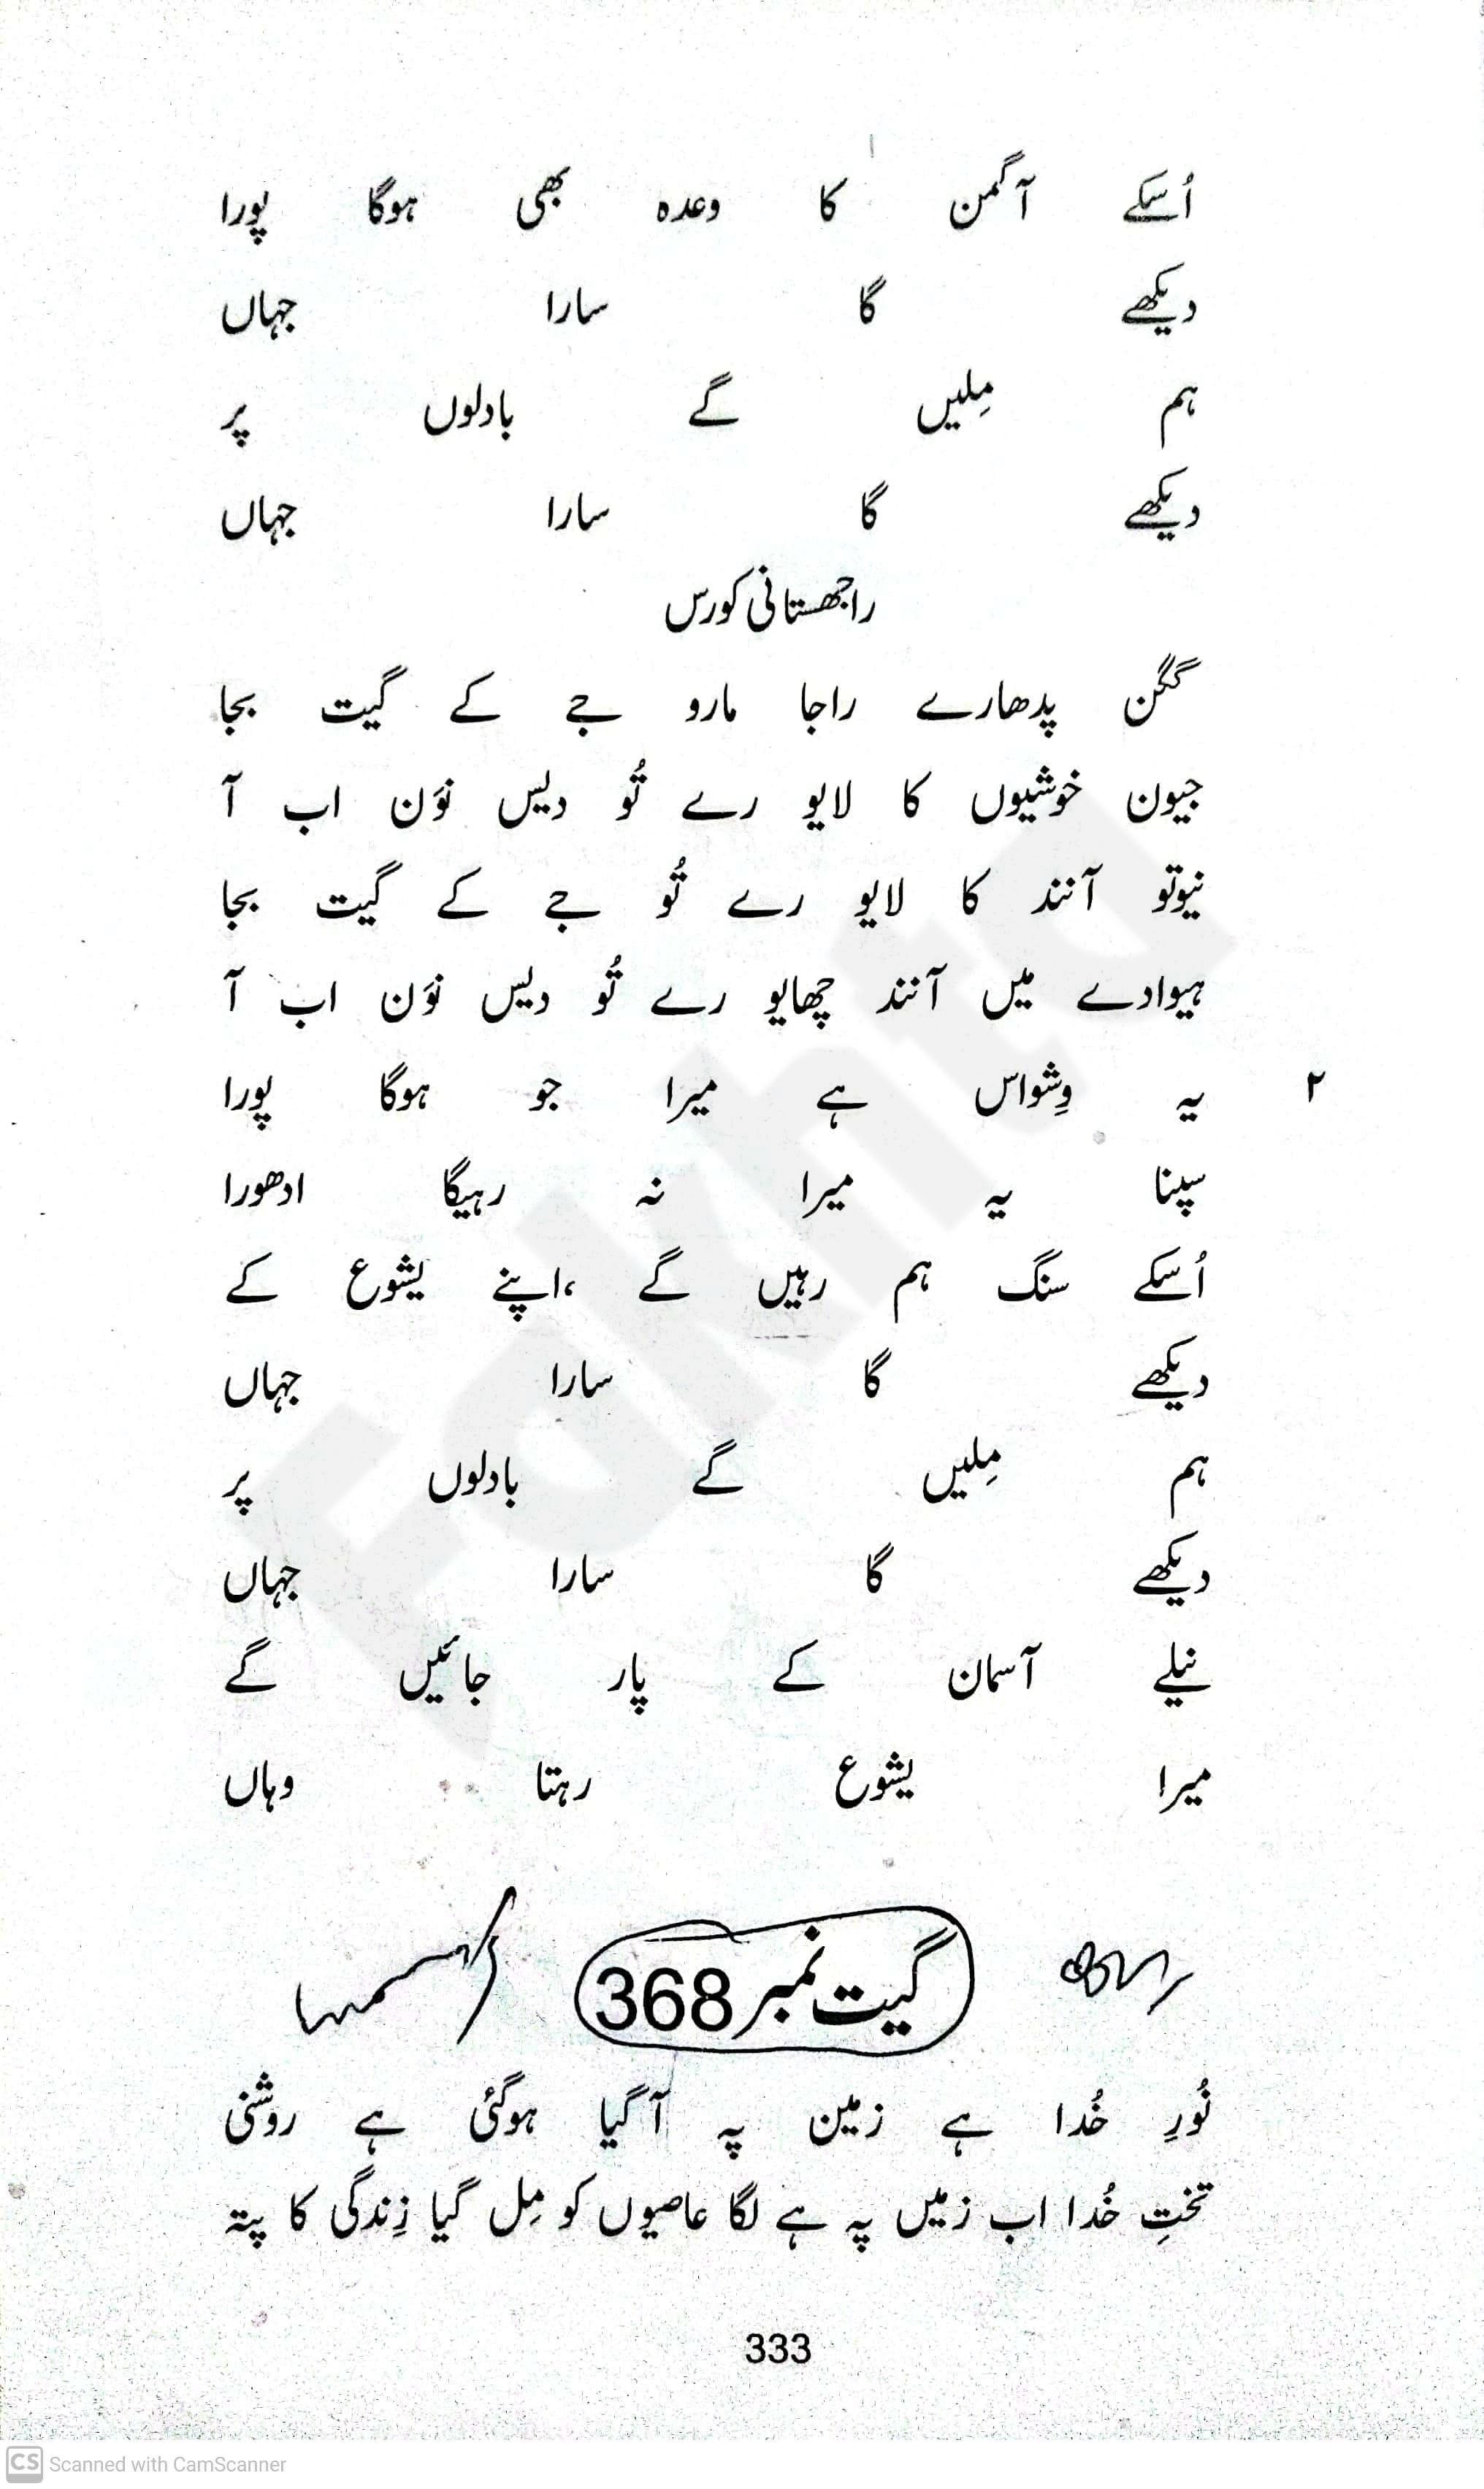 اُسکے آگمن کا وعدہ بھی ہوگا پورا
دیکھے گا سارا جہاں
ہم مِلیں گے بادلوں پر
دیکھے گا سارا جہاں
راجھستانی کورس
گگن پدھارے راجا مارو جے کے گیت بجا
جیون خوشیوں کا لایو رے تُو دیس نوَن اب آ
نیوتو آنند کا لایو رے تُو جے کے گیت بجا
ہیوادے میں آنند چھایو رے تُو دیس نوَن اب آ
۲ یہ وِشواس ہے میرا جو ہوگا پورا
سپنا یہ میرا نہ رہیگا ادھورا
اُسکے سنگ ہم رہیں گے ،اپنے یشوع کے
دیکھے گا سارا جہاں
ہم مِلیں گے بادلوں پر
دیکھے گا سارا جہاں
نیلے آسمان کے پار جائیں گے
میرا یشوع رہتا وہاں
گیت نمبر 368
نُورِ خُدا ہے زمین پہ آگیا ہوگئی ہے روشنی
تختِ خُدا اب زمیں پہ ہے لگا عاصیوں کو مِل گیا زِندگی کا پتہ
333
Fakhta
CS Scanned with CamScanner